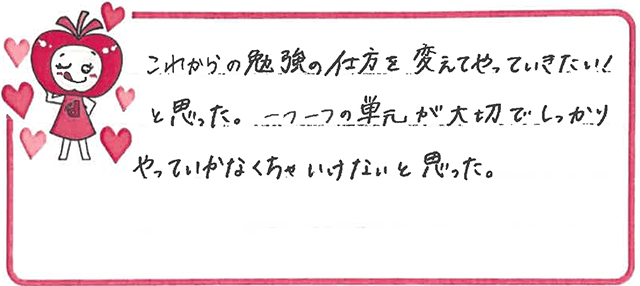 これからの勉強の仕方を変えてやっていきたい!
と思った。一つ一つの単元が大切でしっかり
やっていかなくちゃいけないと思った。